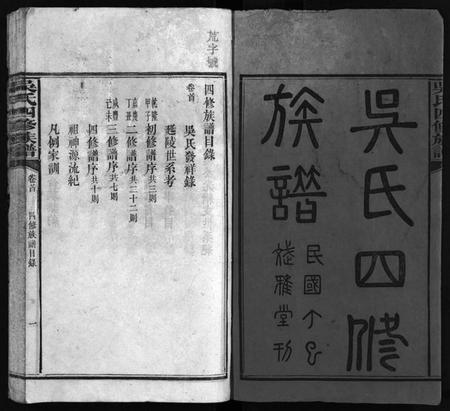 吳氏四修族譜
吳氏四修
族譜
民國丁巳
雅堂刊
荒字號
四修族譜目錄
卷首
吳氏發祥錄
延陵世系考
乾隆甲子初修譜序共三則
嘉慶丁丑二修譜序共二十二則
咸豐己未三修譜序共七則
四修譜序共十則
祖神源流紀
凡例家訓
吳氏四修族譜
卷首
四修族譜目錄
一